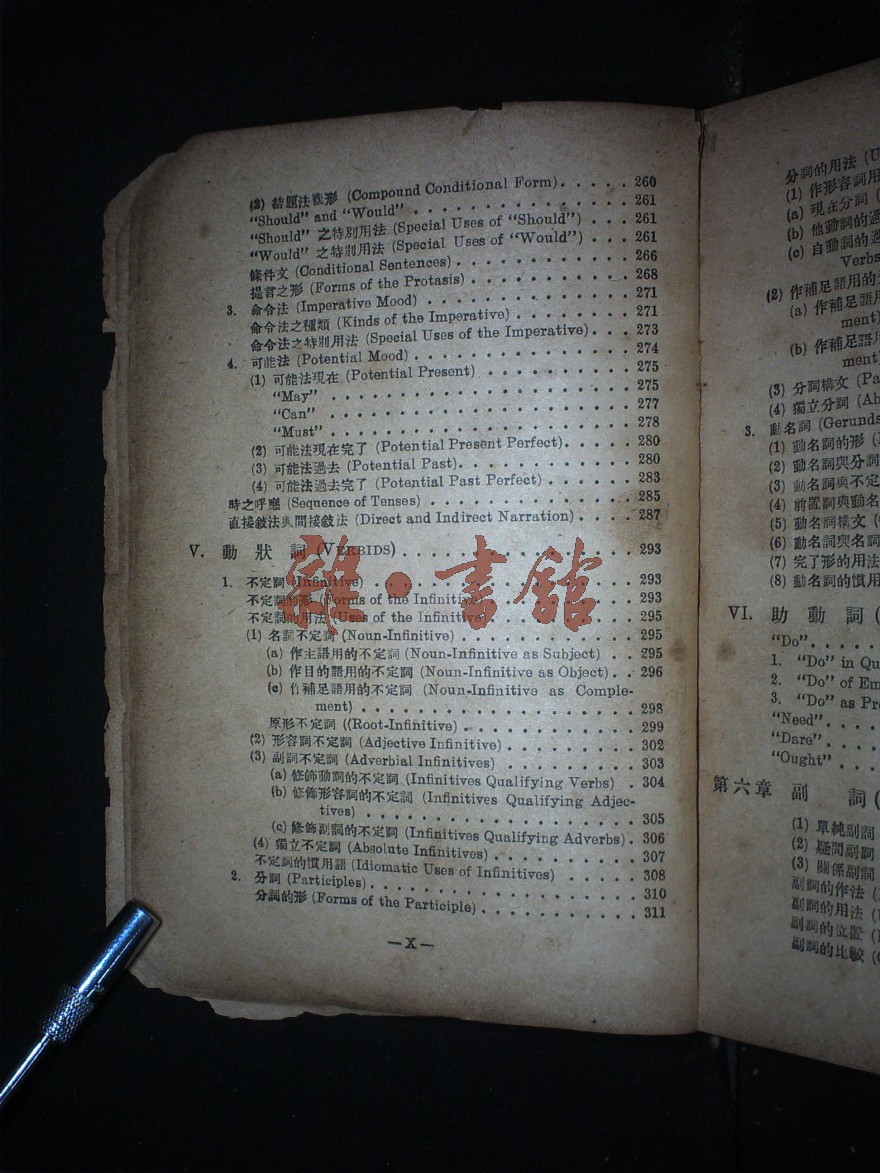 (3) 結題法複形 (Compound Conditional Form). . . . . 260
“Should” and “Would” . . . . . . . . . . . . . . . 261
“Should” 之特別用法 (Special Uses of “Should”) . . . 261
“Would” 之特別用法 (Special Uses of “Would”) . . . 261
條件文 (Conditional Sentences) . . . . . . . . . . . . 266
提言之形 (Forms of the Protasis) . . . . . . . . . . . 268
3. 命令法 (Imperative Mood) . . . . . . . . . . . . . 271
命令法之種類 (Kinds of the Imperative) . . . . . . . . 271
命令法之特別用法 (Special Uses of the Imperative) . . . 273
4. 可能法 (Potential Mood) . . . . . . . . . . . . . . 274
(1) 可能法現在 (Potential Present) . . . . . . . . . . 275
“May” . . . . . . . . . . . . . . . . . . . . 275
“Can” . . . . . . . . . . . . . . . . . . . . 277
“Must” . . . . . . . . . . . . . . . . . . . . 278
(2) 可能法現在完了 (Potential Present Perfect). . . . . 280
(3) 可能法過去 (Potential Past). . . . . . . . . . . . 280
(4) 可能法過去完了 (Potential Past Perfect) . . . . . . 283
時之呼應 (Sequence of Tenses) . . . . . . . . . . . . . 285
直接敍法與間接敍法 (Direct and Indirect Narration) . . . . 287
V. 動狀詞 (VERBIDS) . . . . . . . . . . . . . . . . 293
1. 不定詞 (Infinitive) . . . . . . . . . . . . . . . . 293
不定詞的形 (Forms of the Infinitive) . . . . . . . . . . 293
不定詞的用法 (Uses of the Infinitive) . . . . . . . . . . 295
(1) 名詞不定詞 (Noun-Infinitive) . . . . . . . . . . . 295
(a) 作主語用的不定詞 (Noun-Infinitive as Subject) . . 295
(b) 作目的語用的不定詞 (Noun-Infinitive as Object) . . 296
(c) 作補足語用的不定詞 (Noun-Infinitive as Comple-
ment) . . . . . . . . . . . . . . . . . . 298
原形不定詞 ((Root-Infinitive) . . . . . . . . . . . 299
(2) 形容詞不定詞 (Adjective Infinitive) . . . . . . . . 302
(3) 副詞不定詞 (Adverbial Infinitives) . . . . . . . . 303
(a) 修飾動詞的不定詞 (Infinitives Qualifying Verbs) . 304
(b) 修飾形容詞的不定詞 (Infinitives Qualifying Adjec-
tives) . . . . . . . . . . . . . . . . . . 305
(c) 修飾副詞的不定詞 (Infinitives Qualifying Adverbs) . 306
(4) 獨立不定詞 (Absolute Infinitives) . . . . . . . . . 307
不定詞的慣用語 (Idiomatic Uses of Infinitives) . . . . . 308
2. 分詞 (Participles) . . . . . . . . . . . . . . . . . 310
分詞的形 (Forms of the Participle) . . . . . . . . . . . 311
—X—
雜·書館
分詞的用法 (U
(1) 作形容詞用
(a) 現在分詞 (
(b) 他動詞的過
(c) 自動詞的過
Verbs
(2) 作補足語用的
(a) 作補足語用
ment)
(b) 作補足語用
ment)
(3) 分詞構文 (Pa
(4) 獨立分詞 (Ab
3. 動名詞 (Gerunds
(1) 動名詞的形 (
(2) 動名詞與分詞
(3) 動名詞與不定
(4) 前置詞與動名
(5) 動名詞構文 (
(6) 動名詞與名詞
(7) 完了形的用法
(8) 動名詞的慣用
VI. 助動詞 (
“Do” . . . .
1. “Do” in Qu
2. “Do” of Em
3. “Do” as Pro
“Need” . . . .
“Dare” . . . .
“Ought” . . . .
第六章 副詞 (
(1) 單純副詞
(2) 疑問副詞
(3) 關係副詞
副詞的作法 (
副詞的用法 (U
副詞的位置 (
副詞的比較 (